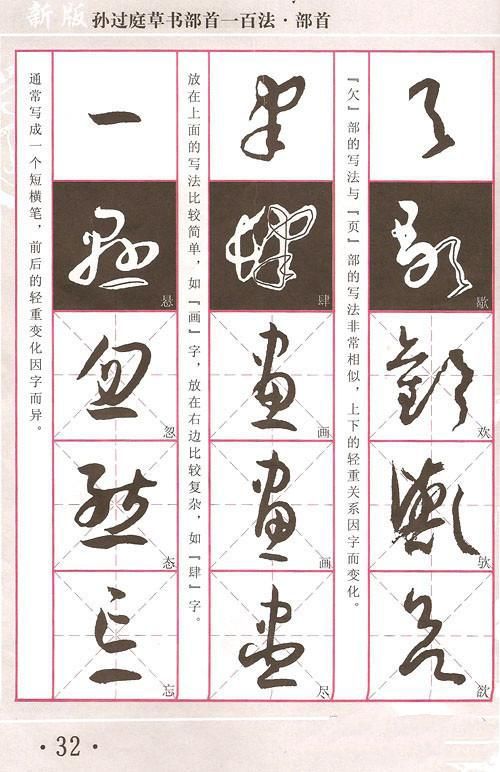 新版
孙过庭草书部首一百法·部首
歇
欢
欤
欲
『欠』部的写法与『页』部的写法非常相似，上下的轻重关系因字而变化。
肆
画
画
尽
放在上面的写法比较简单，如『画』字，放在右边比较复杂，如『肆』字。
一
悬
忽
态
忘
通常写成一个短横笔，前后的轻重变化因字而异。
·32·